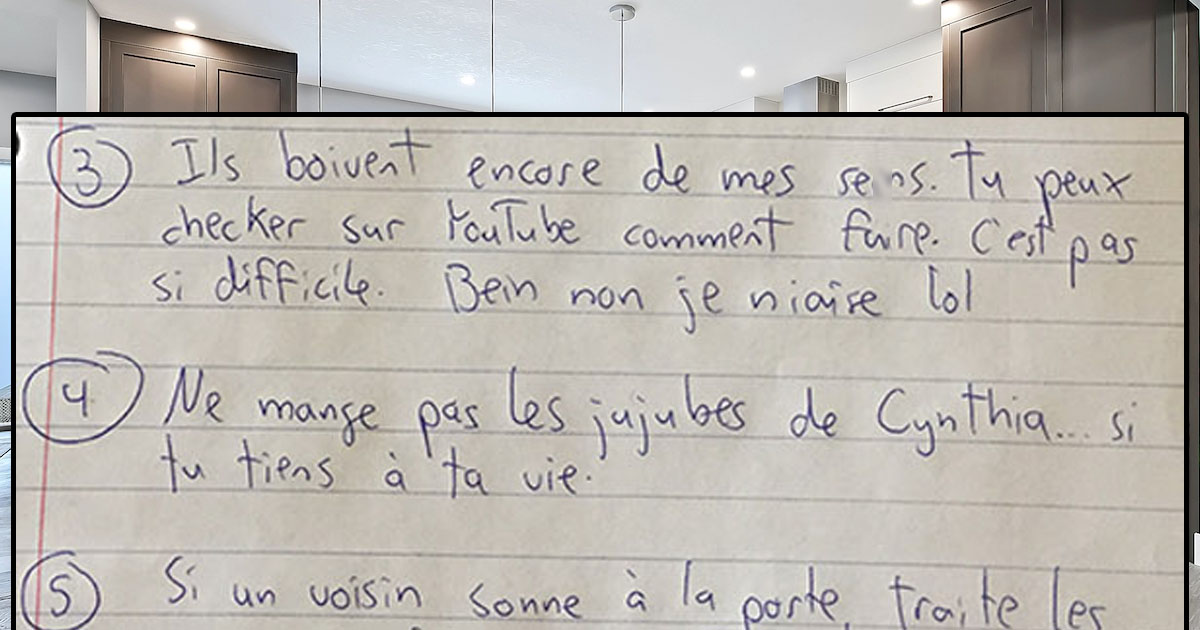 3 Ils boivent encore de mes se ns. Tu peux
checker sur YouTube comment faire. C'est pas
si difficile. Bein non je niaise lol
4 Ne mange pas les jujubes de Cynthia... si
tu tiens à ta vie.
5 Si un voisin sonne à la porte, traite les